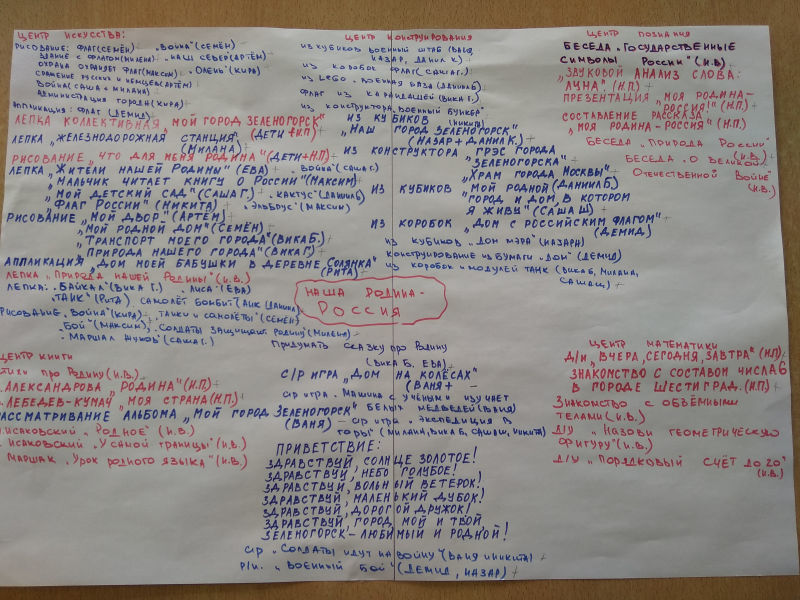 ЦЕНТР ИСКУССТВА:
РИСОВАНИЕ: ФЛАГ(СЕМЁН) „ВОЙНА"(СЕМЁН)
ЗДАНИЕ С ФЛАГОМ(МИЛЕНА) „НАШ СЕВЕР(АРТЁМ)
ОХРАНА ОХРАНЯЕТ ФЛАГ(МАКСИМ) „ОЛЕНЬ"(КИРА)
СРАЖЕНИЕ РУССКИХ И НЕМЦЕВ(АРТЁМ)
ВОЙНА(САША Ш МИЛАНА)
АДМИНИСТРАЦИЯ ГОРОДА(КИРА)
АППЛИКАЦИЯ: ФЛАГ (ДЕМИД)
ЛЕПКА КОЛЛЕКТИВНАЯ „МОЙ ГОРОД ЗЕЛЕНОГОРСК"
ЛЕПКА „ЖЕЛЕЗНОДОРОЖНАЯ СТАНЦИЯ" (ДЕТИ+Н.П)
(МИЛАНА)
РИСОВАНИЕ „ЧТО ДЛЯ МЕНЯ РОДИНА"(ДЕТИ+Н.П)
ЛЕПКА „ЖИТЕЛИ НАШЕЙ РОДИНЫ" (ЕВА) „ВОЙНА"(САША Г.)
„МАЛЬЧИК ЧИТАЕТ КНИГУ О РОССИИ"(МАКСИМ)
„МОЙ ДЕТСКИЙ САД"(САША Г.) „КАКТУС"(ДАНИИЛ Б)
„ФЛАГ РОССИИ" (НИКИТА) „ЭЛЬБРУС"(МАКСИМ)
РИСОВАНИЕ „МОЙ ДВОР" (АРТЁМ)
„МОЙ РОДНОЙ ДОМ"(СЕМЁН)
„ТРАНСПОРТ МОЕГО ГОРОДА"(ВИКА Б.)
„ПРИРОДА НАШЕГО ГОРОДА"(ВИКА Г.)
АППЛИКАЦИЯ „ДОМ МОЕЙ БАБУШКИ В ДЕРЕВНЕ СОЛЯНКА"
(РИТА)
ЛЕПКА „ПРИРОДА НАШЕЙ РОДИНЫ" (И.В.)
ЛЕПКА: „БАЙКАЛ"(ВИКА Г.) „ЛИСА"(ЕВА)
„ТАНК" (РИТА) САМОЛЁТ БОМБИТ
РИСОВАНИЕ „ВОЙНА"(КИРА) „ТАНКИ И САМОЛЁТЫ"(СЕМЁН)
„БОЙ"(МАКСИМ) „СОЛДАТЫ ЗАЩИЩАЮТ РОДИНУ"(МИЛЕНА)
„МАРШАЛ ЖУКОВ"(САША Г.)
ЦЕНТР КОНСТРУИРОВАНИЯ
ИЗ КУБИКОВ ВОЕННЫЙ ШТАБ (ВАНЯ,
НАЗАР, ДАНИЛ К)
ИЗ КОРОБОК ФЛАГ (САША Г.)
ИЗ LEGO „ВОЕННАЯ БАЗА (ДАНИИЛ Б)
ФЛАГ ИЗ КАРАНДАШЕЙ (ВИКА Г.)
ИЗ КОНСТРУКТОРА „ВОЕННЫЙ БУНКЕР"
(НИКИТА)
ИЗ КУБИКОВ
„НАШ ГОРОД ЗЕЛЕНОГОРСК"
(НАЗАР + ДАНИЛ К.)
ИЗ КОНСТРУКТОРА „ГРЭС ГОРОДА
ЗЕЛЕНОГОРСКА"
„ХРАМ ГОРОДА МОСКВЫ"
ИЗ КУБИКОВ „МОЙ РОДНОЙ(ДАНИИЛ Б.)
„ГОРОД И ДОМ, В КОТОРОМ
Я ЖИВУ" (САША Ш)
ИЗ КОРОБОК „ДОМ С РОССИЙСКИМ ФЛАГОМ"
(ДЕМИД)
ИЗ КУБИКОВ „ДОМ МЭРА"(НАЗАРИ)
КОНСТРУИРОВАНИЕ ИЗ БУМАГИ „ДОМ" (ДЕМИД)
ИЗ КОРОБОК И МОДУЛЕЙ ТАНК (ВИКА Б, МИЛАНА,
САША Ш)
ЦЕНТР ПОЗНАНИЯ
БЕСЕДА „ГОСУДАРСТВЕННЫЕ
СИМВОЛЫ РОССИИ"(И.В)
„ЗВУКОВОЙ АНАЛИЗ СЛОВА:
ЛУНА" (Н.П.)
ПРЕЗЕНТАЦИЯ „МОЯ РОДИНА-
РОССИЯ!" (Н.П.)
СОСТАВЛЕНИЕ РАССКАЗА
„МОЯ РОДИНА-РОССИЯ" (Н.П)
БЕСЕДА „ПРИРОДА РОССИИ"
(И.В.)
БЕСЕДА „О ВЕЛИКОЙ
ОТЕЧЕСТВЕННОЙ ВОЙНЕ"
(И.В.)
НАША РОДИНА-
РОССИЯ
ПРИДУМАТЬ СКАЗКУ ПРО РОДИНУ
(ВИКА Б, ЕВА)
С/Р ИГРА „ДОМ НА КОЛЁСАХ"
(ВАНЯ+ –
С/Р ИГРА „МАШИНА С УЧЁНЫМИ ИЗУЧАЕТ
БЕЛЫХ МЕДВЕДЕЙ(ВАНЯ)
С/Р ИГРА „ЭКСПЕДИЦИЯ В
ГОРЫ" (МИЛАНА, ВИКА Б, САША Ш, НИКИТА)
ЦЕНТР КНИГИ
СТИХИ ПРО РОДИНУ(И.В.)
АЛЕКСАНДРОВА „РОДИНА"(Н.П)
ЛЕБЕДЕВ-КУМАЧ „МОЯ СТРАНА(Н.П.)
РАССМАТРИВАНИЕ АЛЬБОМА „МОЙ ГОРОД ЗЕЛЕНОГОРСК"
(ВАНЯ)
ИСАКОВСКИЙ „РОДНОЕ" (И.В.)
ИСАКОВСКИЙ „У САМОЙ ГРАНИЦЫ"(И.В.)
МАРШАК „УРОК РОДНОГО ЯЗЫКА"(И.В.)
ПРИВЕТСТВИЕ:
ЗДРАВСТВУЙ, СОЛНЦЕ ЗОЛОТОЕ!
ЗДРАВСТВУЙ, НЕБО ГОЛУБОЕ!
ЗДРАВСТВУЙ, ВОЛЬНЫЙ ВЕТЕРОК!
ЗДРАВСТВУЙ, МАЛЕНЬКИЙ ДУБОК!
ЗДРАВСТВУЙ, ДОРОГОЙ ДРУЖОК!
ЗДРАВСТВУЙ, ГОРОД МОЙ И ТВОЙ
ЗЕЛЕНОГОРСК – ЛЮБИМЫЙ И РОДНОЙ!
С/Р „СОЛДАТЫ ИДУТ НА ВОЙНУ"(ВАНЯ И НИКИТА)
Р/И. „ВОЕННЫЙ БОЙ"(ДЕМИД, НАЗАР)
ЦЕНТР МАТЕМАТИКИ
Д/И „ВЧЕРА, СЕГОДНЯ, ЗАВТРА" (Н.П)
ЗНАКОМСТВО С СОСТАВОМ ЧИСЛА 6
В ГОРОДЕ ШЕСТИГРАД.(Н.П)
ЗНАКОМСТВО С ОБЪЁМНЫМИ
ТЕЛАМИ(И.В.)
Д/У „НАЗОВИ ГЕОМЕТРИЧЕСКУЮ
ФИГУРУ"(И.В.)
Д/У „ПОРЯДКОВЫЙ СЧЁТ ДО 20"
(И.В.)